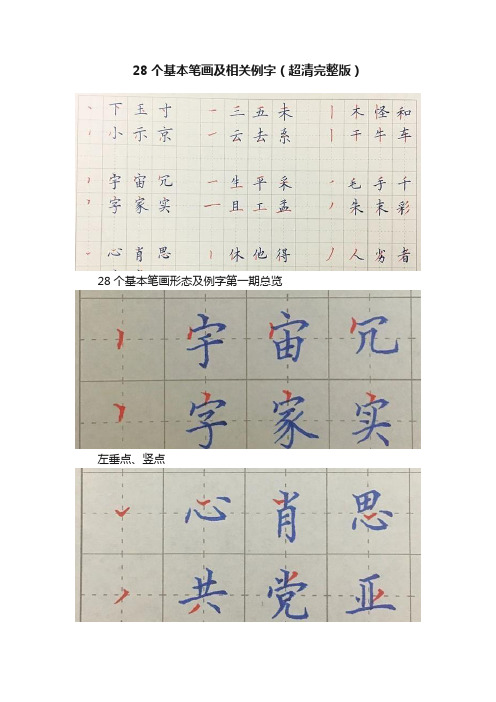 28个基本笔画及相关例字(超清完整版)
下 玉 寸 三 五 未 木 怪 和
小 示 京 云 去 系 干 牛 车
宇 宙 冗 生 平 采 毛 手 千
字 家 实 且 工 孟 朱 末 彩
心 肖 思 休 他 得 人 劣 者
28个基本笔画形态及例字第一期总览
宇 宙 冗
字 家 实
左垂点、竖点
心 肖 思
共 党 亚